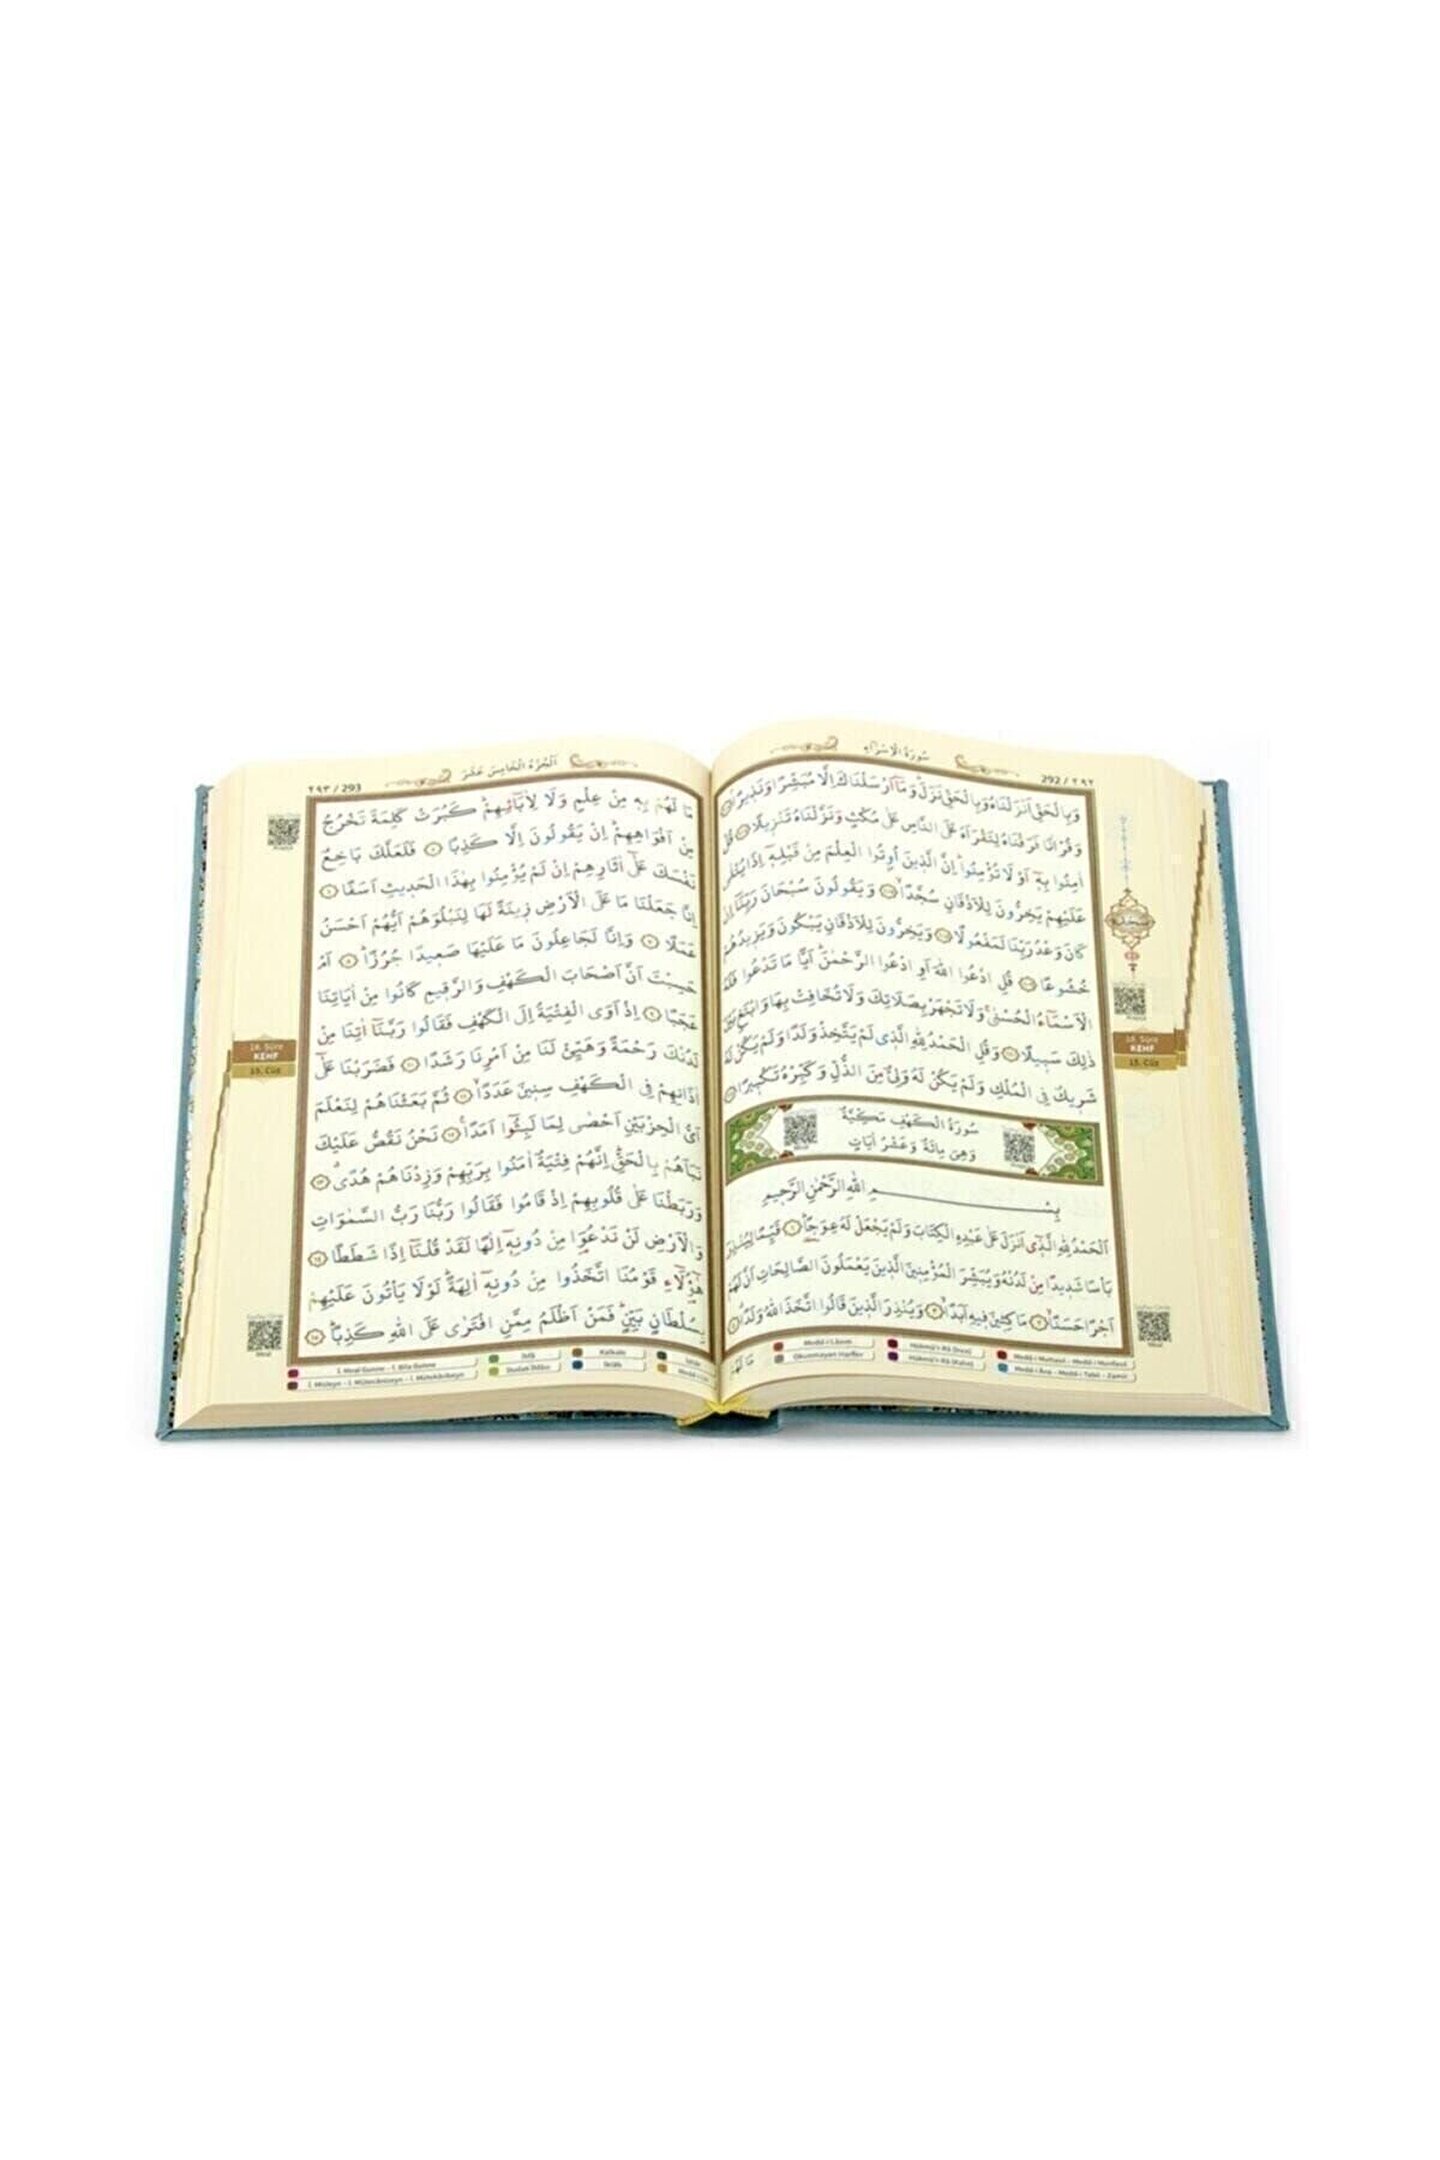 سُورَةُ الْاِسْرَاءِ
292 / ٢٩٢
وَبِالْحَقِّ اَنْزَلْنَاهُ وَبِالْحَقِّ نَزَلَ وَمَٓا اَرْسَلْنَاكَ اِلَّا مُبَشِّرًا وَنَذِيرًا
وَقُرْاٰنًا فَرَقْنَاهُ لِتَقْرَاَهُ عَلَى النَّاسِ عَلٰى مُكْثٍ وَنَزَّلْنَاهُ تَنْزِيلًا قُلْ
اٰمِنُوا بِهِٓ اَوْ لَا تُؤْمِنُوا اِنَّ الَّذِينَ اُوتُوا الْعِلْمَ مِنْ قَبْلِهِٓ اِذَا يُتْلٰى
عَلَيْهِمْ يَخِرُّونَ لِلْاَذْقَانِ سُجَّدًا وَيَقُولُونَ سُبْحَانَ رَبِّنَٓا اِنْ
كَانَ وَعْدُ رَبِّنَا لَمَفْعُولًا وَيَخِرُّونَ لِلْاَذْقَانِ يَبْكُونَ وَيَزِيدُهُمْ
خُشُوعًا قُلِ ادْعُوا اللّٰهَ اَوِ ادْعُوا الرَّحْمٰنَ اَيًّا مَا تَدْعُوا فَلَهُ
الْاَسْمَٓاءُ الْحُسْنٰى وَلَا تَجْهَرْ بِصَلَاتِكَ وَلَا تُخَافِتْ بِهَا وَابْتَغِ بَيْنَ
ذٰلِكَ سَبِيلًا وَقُلِ الْحَمْدُ لِلّٰهِ الَّذِي لَمْ يَتَّخِذْ وَلَدًا وَلَمْ يَكُنْ لَهُ
شَرِيكٌ فِي الْمُلْكِ وَلَمْ يَكُنْ لَهُ وَلِيٌّ مِنَ الذُّلِّ وَكَبِّرْهُ تَكْبِيرًا
سُورَةُ الْكَهْفِ مَكِّيَّةٌ
وَهِيَ مِائَةٌ وَعَشْرُ اٰيَاتٍ
بِسْمِ اللّٰهِ الرَّحْمٰنِ الرَّحِيمِ
اَلْحَمْدُ لِلّٰهِ الَّذِٓي اَنْزَلَ عَلٰى عَبْدِهِ الْكِتَابَ وَلَمْ يَجْعَلْ لَهُ عِوَجًا ١ قَيِّمًا لِيُنْذِرَ
بَاْسًا شَدِيدًا مِنْ لَدُنْهُ وَيُبَشِّرَ الْمُؤْمِنِينَ الَّذِينَ يَعْمَلُونَ الصَّالِحَاتِ اَنَّ لَهُمْ
اَجْرًا حَسَنًا ٢ مَاكِثِينَ فِيهِ اَبَدًا ٣ وَيُنْذِرَ الَّذِينَ قَالُوا اتَّخَذَ اللّٰهُ وَلَدًا ٤
مَا لَهُمْ
18. Sûre
KEHF
15. Cüz
Medd-i Lâzım
Okunmayan Harfler
Hükmü'r-Râ (İnce)
Hükmü'r-Râ (Kalın)
Medd-i Muttasıl - Medd-i Munfasıl
Medd-i Ârız - Medd-i Tabiî - Zamir
اَلْجُزْءُ الْخَامِسَ عَشَرَ
٢٩٣ / 293
مَا لَهُمْ بِهِ مِنْ عِلْمٍ وَلَا لِاٰبَٓائِهِمْ كَبُرَتْ كَلِمَةً تَخْرُجُ
مِنْ اَفْوَاهِهِمْ اِنْ يَقُولُونَ اِلَّا كَذِبًا ٥ فَلَعَلَّكَ بَاخِعٌ
نَفْسَكَ عَلٰٓى اٰثَارِهِمْ اِنْ لَمْ يُؤْمِنُوا بِهٰذَا الْحَدِيثِ اَسَفًا ٦
اِنَّا جَعَلْنَا مَا عَلَى الْاَرْضِ زِينَةً لَهَا لِنَبْلُوَهُمْ اَيُّهُمْ اَحْسَنُ
عَمَلًا ٧ وَاِنَّا لَجَاعِلُونَ مَا عَلَيْهَا صَعِيدًا جُرُزًا ٨ اَمْ
حَسِبْتَ اَنَّ اَصْحَابَ الْكَهْفِ وَالرَّقِيمِ كَانُوا مِنْ اٰيَاتِنَا
عَجَبًا ٩ اِذْ اَوَى الْفِتْيَةُ اِلَى الْكَهْفِ فَقَالُوا رَبَّنَٓا اٰتِنَا مِنْ
لَدُنْكَ رَحْمَةً وَهَيِّئْ لَنَا مِنْ اَمْرِنَا رَشَدًا ١٠ فَضَرَبْنَا عَلٰٓى
اٰذَانِهِمْ فِي الْكَهْفِ سِنِينَ عَدَدًا ١١ ثُمَّ بَعَثْنَاهُمْ لِنَعْلَمَ
اَيُّ الْحِزْبَيْنِ اَحْصٰى لِمَا لَبِثُٓوا اَمَدًا ١٢ نَحْنُ نَقُصُّ عَلَيْكَ
نَبَاَهُمْ بِالْحَقِّ اِنَّهُمْ فِتْيَةٌ اٰمَنُوا بِرَبِّهِمْ وَزِدْنَاهُمْ هُدًى ١٣
وَرَبَطْنَا عَلٰى قُلُوبِهِمْ اِذْ قَامُوا فَقَالُوا رَبُّنَا رَبُّ السَّمٰوَاتِ
وَالْاَرْضِ لَنْ نَدْعُوَا مِنْ دُونِهِٓ اِلٰهًا لَقَدْ قُلْنَٓا اِذًا شَطَطًا ١٤
هٰٓؤُلَٓاءِ قَوْمُنَا اتَّخَذُوا مِنْ دُونِهِٓ اٰلِهَةً لَوْلَا يَاْتُونَ عَلَيْهِمْ
بِسُلْطَانٍ بَيِّنٍ فَمَنْ اَظْلَمُ مِمَّنِ افْتَرٰى عَلَى اللّٰهِ كَذِبًا ١٥
18. Sûre
KEHF
15. Cüz
İ. Meal Gunne - İ. Bila Gunne
İ. Misleyn - İ. Mütecâniseyn - İ. Mütekâribeyn
İhfâ
Dudak İhfâsı
Kalkale
İklâb